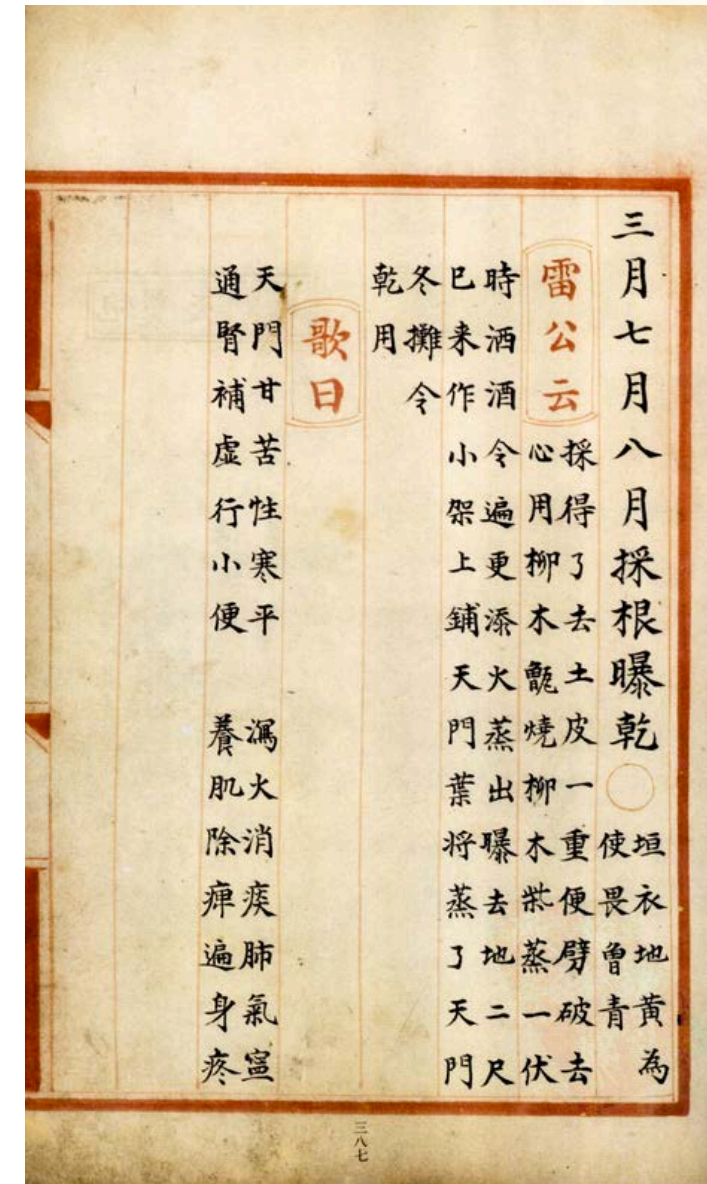 三月七月八月採根曝乾○
垣衣地黃為
使畏曾青
雷公云
採得了去土皮一重便劈破去
心用柳木甑燒柳木柴蒸一伏
時洒酒令遍更添火蒸出曝去地二尺
巳来作小架上鋪天門葉将蒸了天門
冬攤令
乾用
歌曰
天門甘苦性寒平 瀉火消痰肺氣寍
通腎補虛行小便 養肌除痺遍身疼
三八七